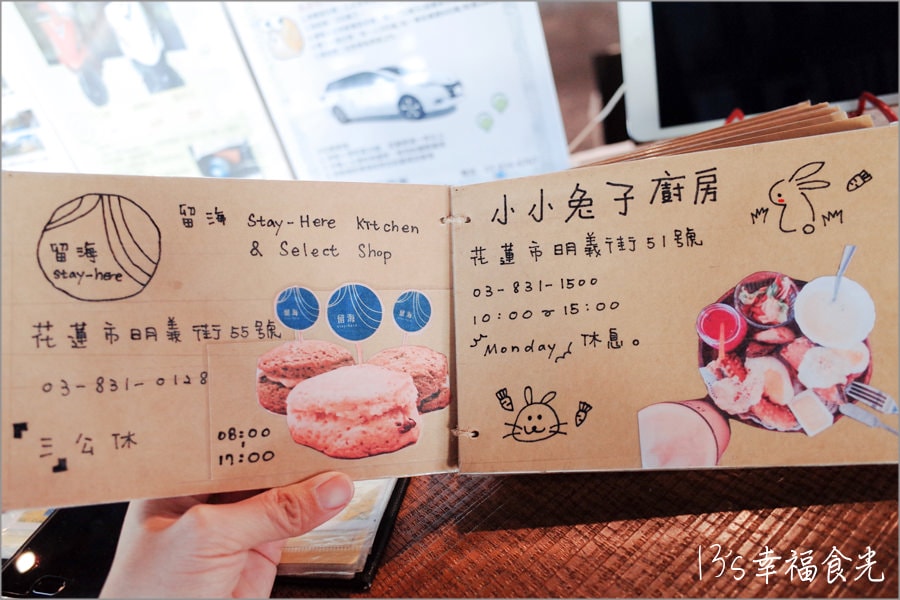 留海
stay-here
留海 Stay-Here Kitchen
& Select Shop
花蓮市明義街55號
03-831-0128
三公休
08:00
17:00
留海
留海
留海
小小兔子廚房
花蓮市明義街51號
03-831-1500
10:00~15:00
Monday 休息。
13's幸福食光